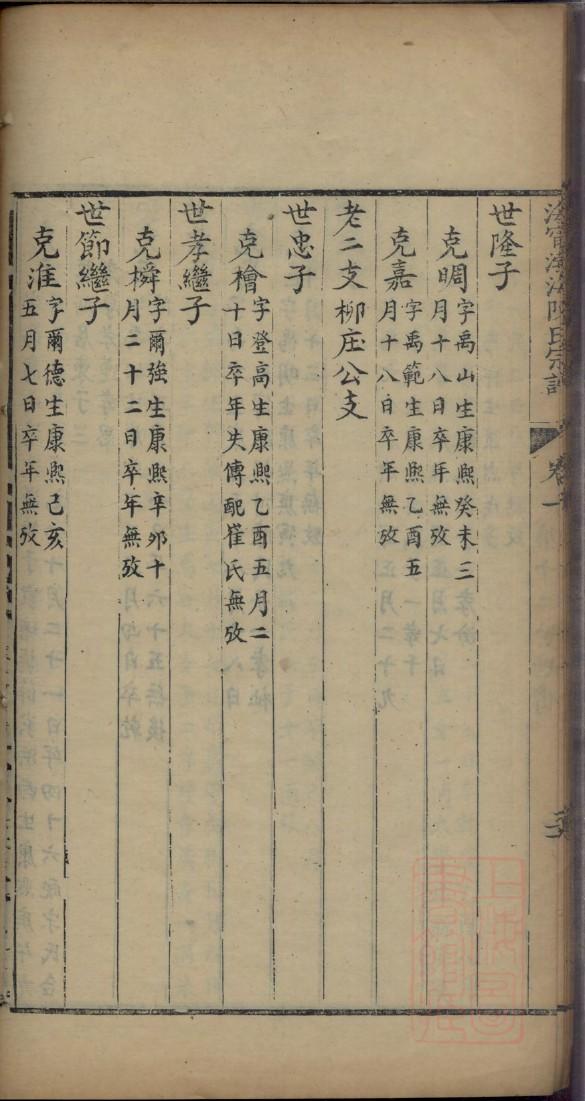 世隆子
克晭字禹山生康熙癸未三
月十八日卒年無攷
克嘉字禹範生康熙乙酉五
月十八日卒年無攷
老二支柳庄公支
世忠子
克檜字登高生康熙乙酉五月二
十日卒年失傳配崔氏無攷
世孝繼子
克舜字爾強生康熙辛夘十
月二十二日卒年無攷
世節繼子
克淮字爾德生康熙己亥
五月七日卒年無攷